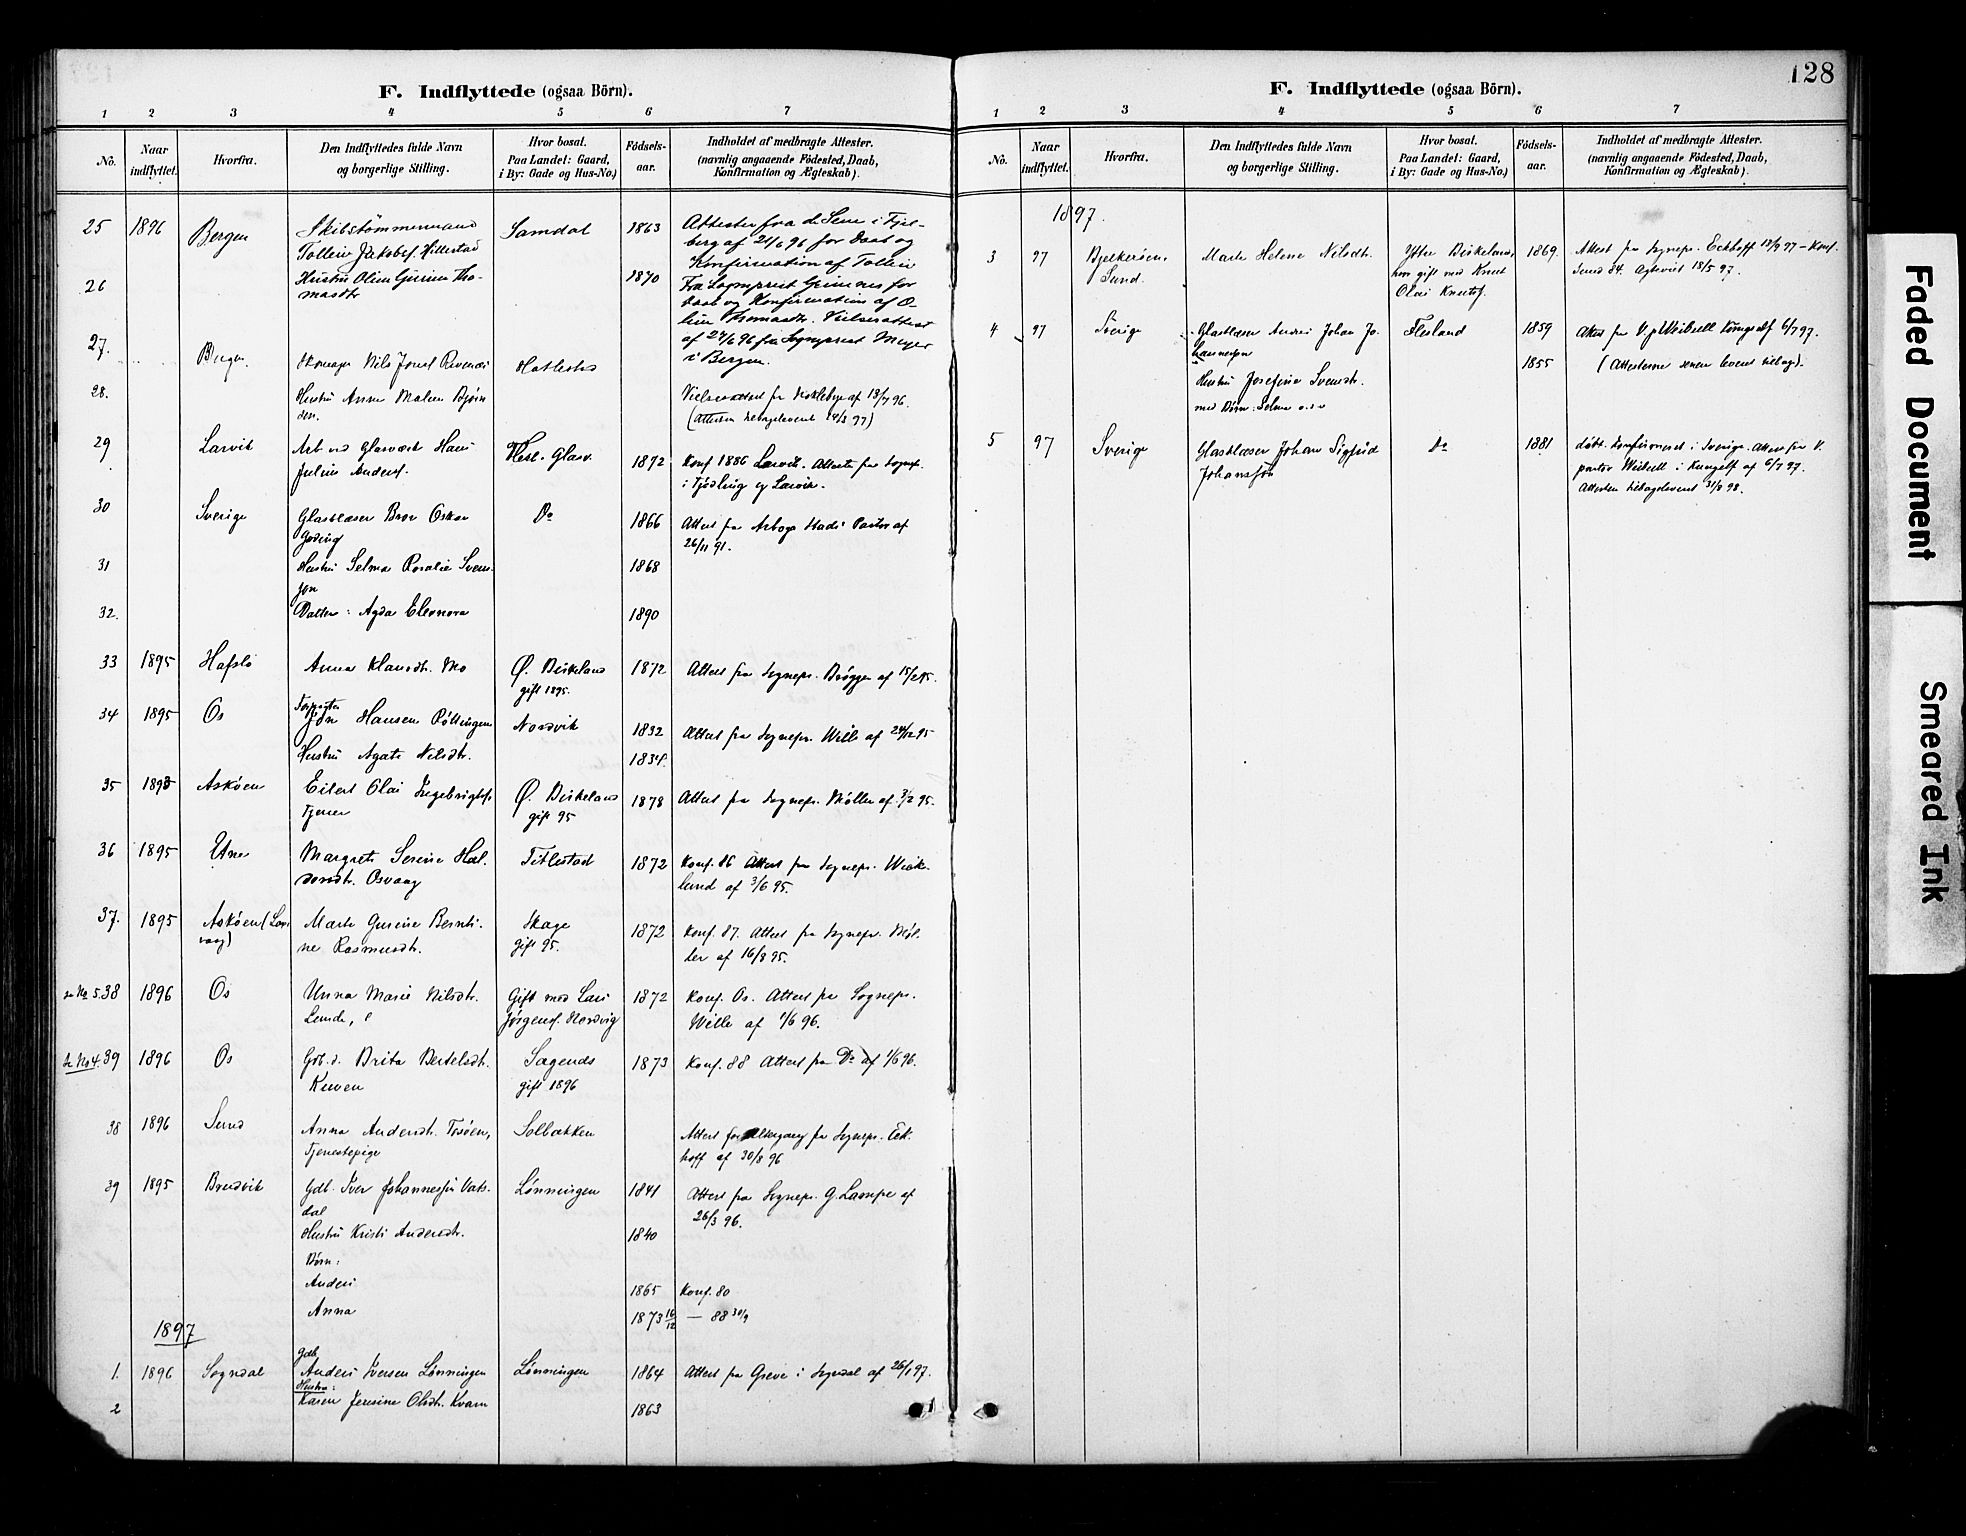 F. Indflyttede (ogsaa Börn).
1 2 3 4 5 6 7
No. Naar indflyttet. Hvorfra. Den Indflyttedes fulde Navn og borgerlige Stilling. Hvor bosat. Paa Landet: Gaard, i By: Gade og Hus-No.) Födsels-aar. Indholdet af medbragte Attester. (navnlig angaaende Födested, Daab, Konfirmation og Ægteskab).
25 1896 Bergen Skibstömmermand Samdal 1863 Attester fra
Tollein Jakobsf. Hillestad berg af 21/6 96 for Daab og
Konfirmation af Tollein
26 Hustru Oline Gurine Tho- 1870 Fra Sogneprest Grimnes for
masdtr Daab og Konfirmation af O-
line Thomasdtr. Vielsesattest
af 24/6 96 fra Sogneprest Meyer
i Bergen.
27. Bergen. Nils Josef
28. Hustru Anna Malene Bjørn Vielsesattest fra af 18/7 96.
sen. (Attesten tilbageleveret 14/3 97)
29 Larvik Arb. ved Glasværk Hans Herl. Glasv. 1872 Konf 1886 Larvik. Attest fra Sognepr.
Julius Andersf. i Tjødling og Larvik.
30 Sverige Glasblæser Bror Oskar Do 1866 Attest fra Arboga Stads Pastor af
Goding 26/11 91.
31 Hustru Selma Rosalie Svens- 1868
son
32. Datter: Agda Eleonora 1890
33 1895 Hafslo Anna Klausdtr. Mo Ø. Birkeland 1872 Attest fra Sognepr. Brøgger af 15/2 95.
gift 1895.
34 1895 Os Jon Hansen Røttingen Nordvik 1832 Attest fra Sognepr. Wille af 24/12 95
Hustru Agate Nilsdtr. 1834.
35 1895 Askøen Eilert Olai Ingebrigtsf. Ø. Birkeland 1878 Attest fra Sognepr. Møller af 3/2 95.
Tjener gift 95
36 1895 Etne Margrete Serine Hal- Titlestad 1872 Konf. 86 Attest fra Sognepr. Wiik-
dorsdtr. Osvaag lund af 3/6 95.
37. 1895 Askøen Marte Gurine Bernti- Skage 1872 Konf. 87. Attest fra Sognepr. Møl-
ne Rasmusdtr. gift 95. ler af 16/8 95.
se No 5. 38 1896 Os Anna Marie Nilsdtr. Gift med Lars 1872 Konf. Os. Attest fra Sognepr.
Lunde, Jørgensf. Nordvig Wille af 1/6 96.
se No 4. 39 1896 Os Gdb. d. Brita Bertelsdtr. Sagends 1873 Konf. 88 Attest fra Do af 1/6 96.
Kuven gift 1896
38 1896 Sund Anna Andersdtr. Tosøen, Solbakken Attest for Altergang fra Sognepr. Eck-
Tjenestepige hoff af 30/8 96
39 1895 Bruvik Gdb. Iver Johannesson Vats- Lønningen 1841 Attest fra Sognepr. G. Lampe af
dal 26/3 96.
Hustru Kristi Andersdtr. 1840
Børn:
Anders 1865 Konf. 80
Anna 1873 16/12 — 88 30/9
1897
1. 1896 Sogndal Gdb. Anders Iversen Lønningen Lønningen 1864 Attest fra Greve i Sogndal af 26/1 97.
Hustru:
2 Karen Jensine Olsdtr. Kvam 1863
128
F. Indflyttede (ogsaa Börn).
1 2 3 4 5 6 7
No. Naar indflyttet. Hvorfra. Den Indflyttedes fulde Navn og borgerlige Stilling. Hvor bosat. Paa Landet: Gaard, i By: Gade og Hus-No.) Födsels-aar. Indholdet af medbragte Attester. (navnlig angaaende Födested, Daab, Konfirmation og Ægteskab).
1897.
3 97 Bjelkerøen, Marte Helene Nilsdtr. Ytre Birkeland, 1869. Attest fra Sognepr. Eckhoff 19/9 97 – Konf.
Sund. hvor gift med Knut Sund 84. Ægteviet 18/5 97.
Olai Knutsf.
4 97 Sverige Glasblæser Anders Johan Jo- Flesland 1859 Attest fra V. p. Weibull Kongelf 6/7 97.
hannesson
Hustru Josefine Svensdtr. 1855 (Attesterne senere leveret tilbage).
med Børn: Selma
5 97 Sverige Glasblæser Johan Sigfrid Do 1881 døbt. Konfirmeret i Sverige. Attest fra V.
Johansson pastor Weibull i Kungelf af 6/7 97.
Attesten tilbageleveret 31/8 98.
Faded Document
Smeared Ink